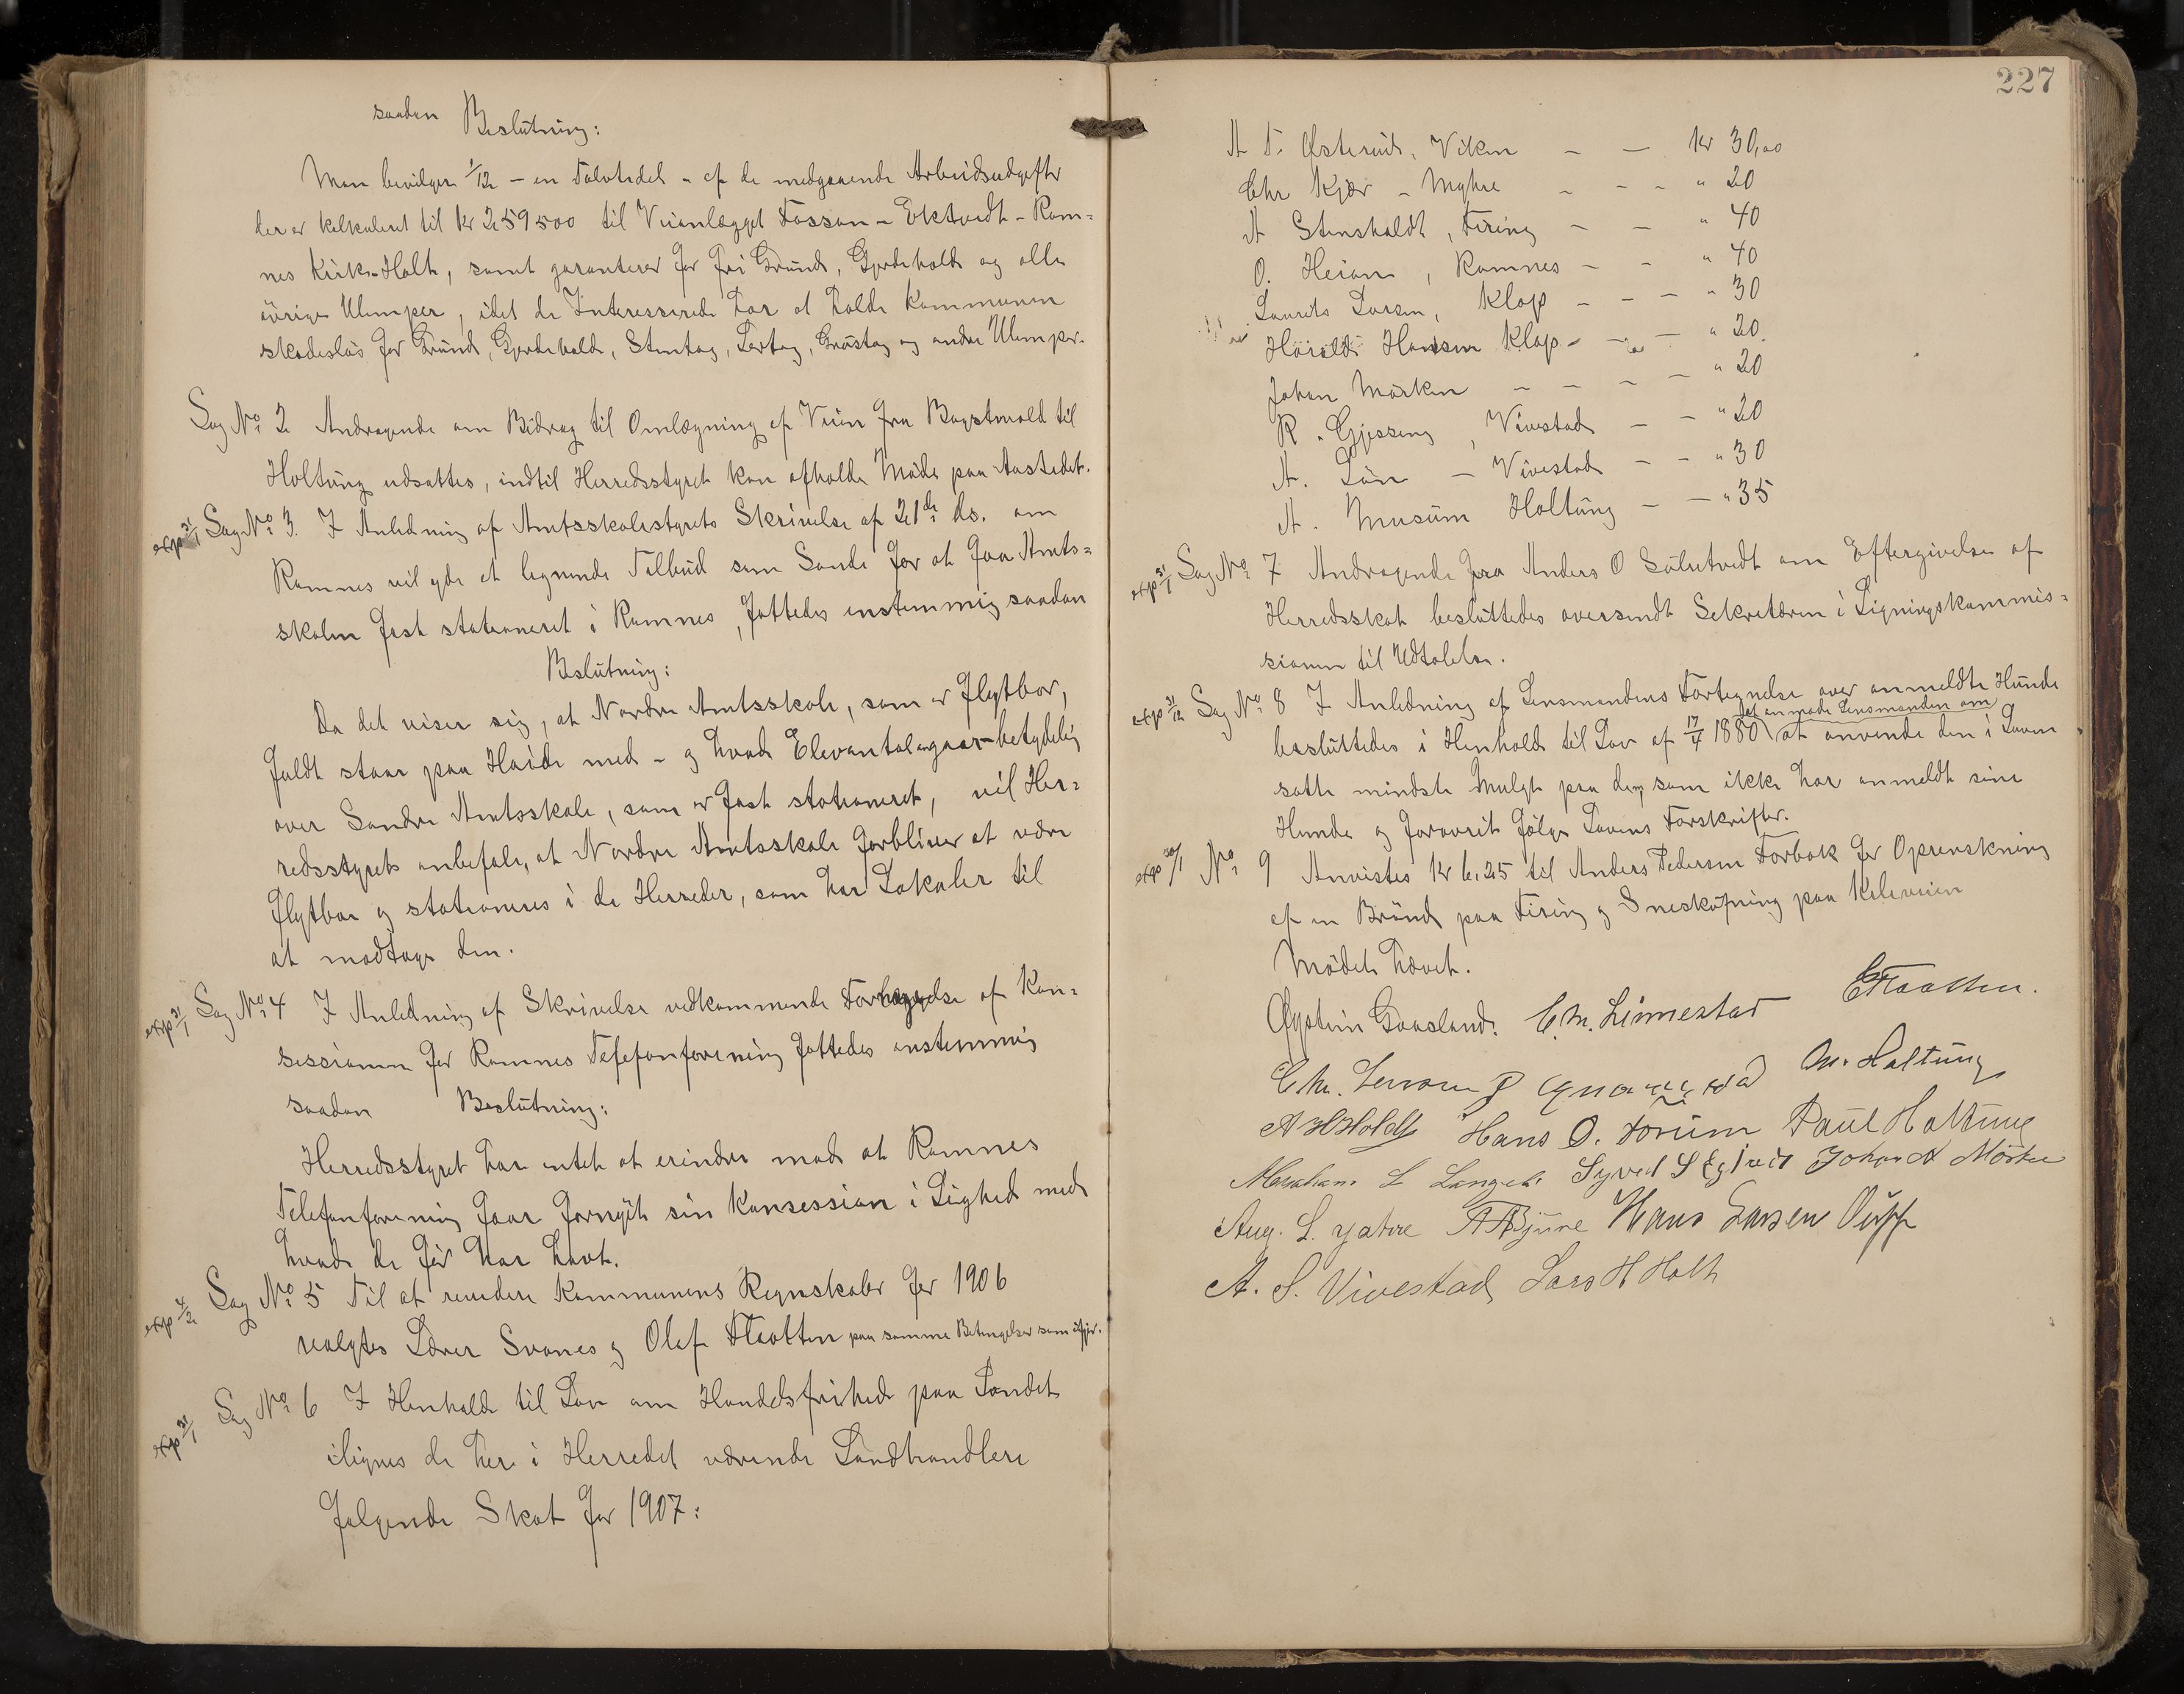 saadan Beslutning:
Man bevilger 1/12 - en Tolvtedel - af de medgaaende Arbeidsudgifter
der er kalkuleret til Kr 259500 til Veianlægget Fossan - Ektvedt - Ram=
nes Kirke-Holt, samt garanterer for fri Grund, Gjerdehold og alle
övrige Ulemper, idet de Interesserede har at holde Kommunen
skadeslös for Grund, Gjerdehold, Stentag, Lertag, Grustag og andre Ulemper.
Sag No 2 Andragende om Bidrag til Omlægning af Veien fra Bogstvold til
Holtung udsattes, indtil Herredsstyret kan afholde Möde paa Aastedet.
exp 31/1 Sag No 3. I Anledning af Amtsskolestyrets Skrivelse af 21de ds. om
Ramnes vil yde et lignende Tilbud som Sande for at faa Amts=
skolen fast stationeret i Ramnes, fattedes enstemmig saadan
Beslutning:
Da det viser sig, at Nordre Amtsskole, som er flytbar,
fuldt staar paa Høide med - og hvad Elevantal angaar betydelig
over Søndre Amtsskole, som er fast stationeret, vil Her=
redsstyret anbefale, at Nordre Amtsskole forbliver at være
flytbar og stationeres i de Herreder, som har Lokaler til
at modtage den.
exp 31/1 Sag No 4 I Anledning af Skrivelse vedkommende Forlængelse af Kon=
sessionen for Ramnes Telefonforening fattedes enstemmig
saadan Beslutning:
Herredsstyret har intet at erindre mod at Ramnes
Telefonforening faar fornyet sin Konsession i Lighed med
hvad de för har havt.
exp 4/2 Sag No 5 Til at revidere Kommunens Regnskaber for 1906
valgtes Lærer Svanes og Olaf Flaatten paa samme Betingelser som ifjor.
exp 31/1 Sag No 6 I Henhold til Lov om Handelsfrihed paa Landet
ilignes de her i Herredet værende Landhandlere
følgende Skat for 1907:
227
A T. Østerud, Viken - - Kr 30,00
Chr Kjær - Myhre - - - " 20
A Stensholdt, Firing - - " 40
O. Heian, Ramnes - - " 40
Laurits Larsen, Klop - - - " 30
Harald Hansen Klop - - - " 20
Johan Mörken - - - - " 20
R. Gjessing, Vivestad - - " 20
A. Lön - Vivestad - - " 30
A. Musum Holtung - - " 35
exp 31/1 Sag No 7 Andragende fra Anders O Sulutvedt om Eftergivelse af
Herredsskat besluttedes oversendt Sekretæren i Ligningskommis=
sionen til Udtalelse.
exp 31/12 Sag No 8 I Anledning af Lensmandens Fortegnelse over anmeldte Hunde
besluttedes i Henhold til Lov af 17/4 1880 at anmode Lensmanden om at anvende den i Loven
satte mindste Mulgt paa dem, som ikke har anmeldt sine
Hunde og forøvrit følge Lovens Forskrifter.
exp 30/1 No 9 Anvistes Kr 6,25 til Anders Pedersen Forbak for Oprenskning
af en Brönd paa Firing og Sneskufning paa Kileveien
Mödet hævet.
Øystein Gaasland. C. M. Linnestad E Flaatten.
Ch. Lensberg Chr. Holtung
A H Holdt Hans O. Forum Paul Holtung
Abraham L Langeb. Syvert S Johan A Mörken
Aug. L. A. Bjune Hans Larsen
A. S. Vivestad Lars H Holt